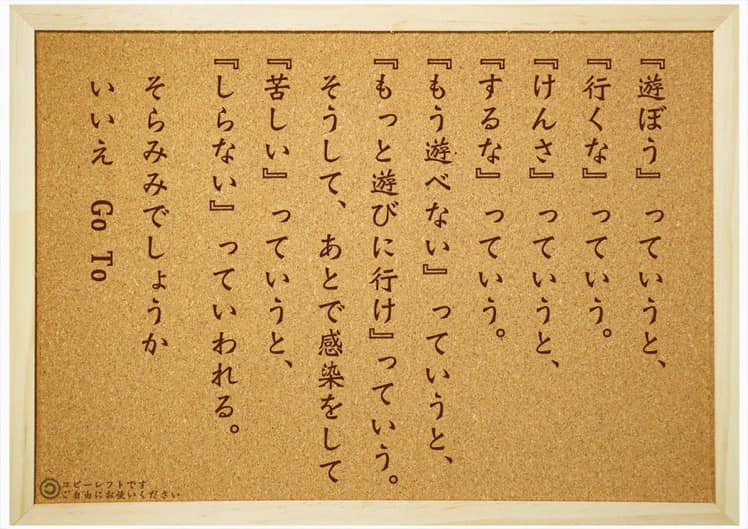 『遊ぼう』っていうと、
『行くな』っていう。
『けんさ』っていうと、
『するな』っていう。
『もう遊べない』っていうと、
『もっと遊びに行け』っていう。
そうして、あとで感染をして
『苦しい』っていうと、
『しらない』っていわれる。
そらみみでしょうか
いいえ　Go To
コピーレフトです
ご自由にお使いください